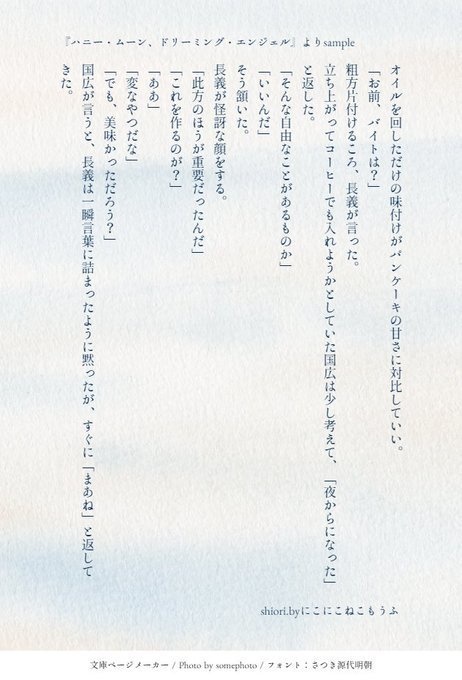 『ハニー・ムーン、ドリーミング・エンジェル』よりsample
オイルを回しただけの味付けがパンケーキの甘さに対比していい。
「お前、バイトは？」
粗方片付けるころ、長義が言った。
立ち上がってコーヒーでも入れようかとしていた国広は少し考えて、「夜からになった」
と返した。
「そんな自由なことがあるものか」
「いいんだ」
そう頷いた。
長義が怪訝な顔をする。
「此方のほうが重要だったんだ」
「これを作るのが？」
「ああ」
「変なやつだな」
「でも、美味かっただろう？」
国広が言うと、長義は一瞬言葉に詰まったように黙ったが、すぐに「まあね」と返して
きた。
shiori.byにこにこねこもうふ
文庫ページメーカー / Photo by somephoto / フォント：さつき源代明朝